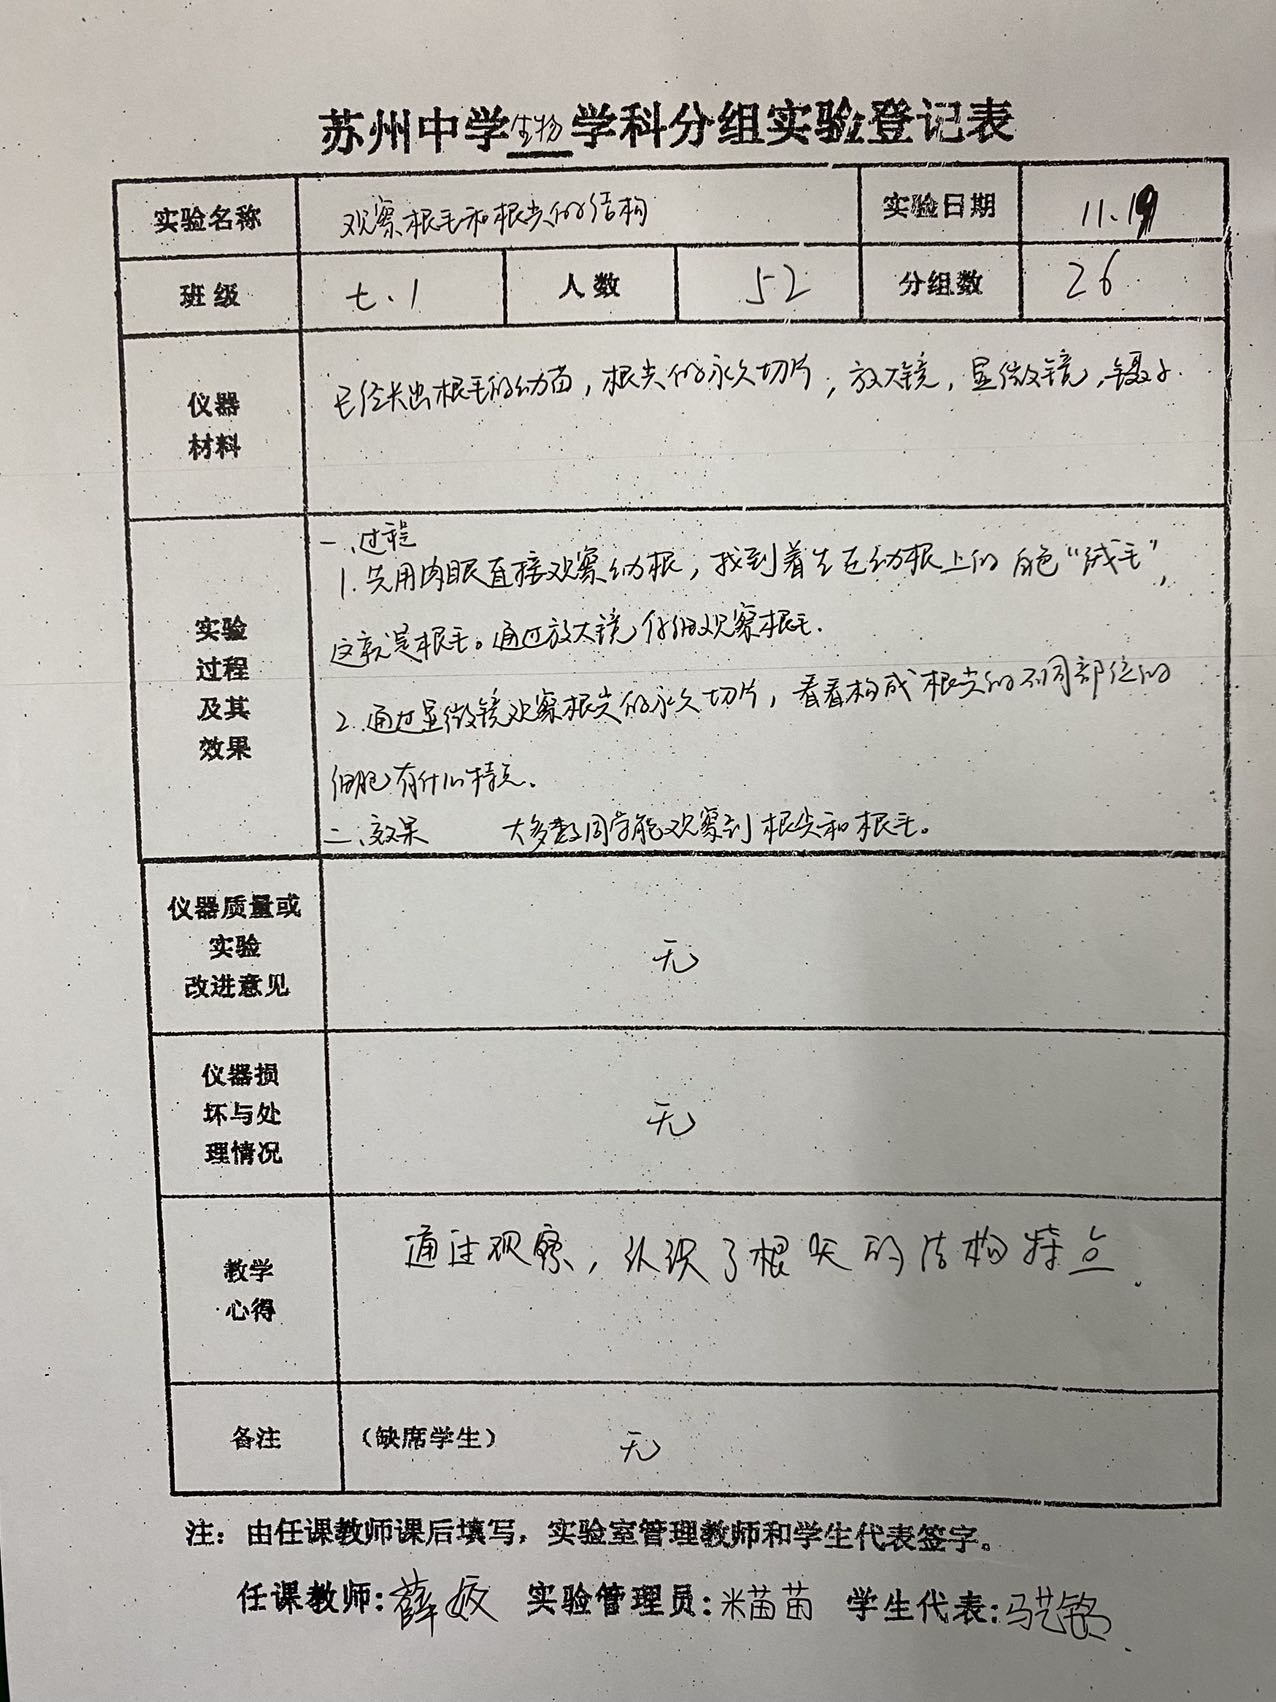 苏州中学生物学科分组实验登记表
实验名称 观察根毛和根尖的结构 实验日期 11.19
班级 七.1 人数 52 分组数 26
仪器
材料
已经长出根毛的幼苗，根尖的永久切片，放大镜，显微镜，镊子.
实验
过程
及其
效果
一、过程
1.先用肉眼直接观察幼根，找到着生在幼根上的白色“绒毛”，
这就是根毛。通过放大镜仔细观察根毛.
2.通过显微镜观察根尖的永久切片，看看构成根尖的不同部位的
细胞有什么特点.
二、效果 大多数同学能观察到根尖和根毛。
仪器质量或
实验
改进意见
无
仪器损
坏与处
理情况
无
教学
心得
通过观察，认识了根尖的结构特点.
备注 （缺席学生） 无
注：由任课教师课后填写，实验室管理教师和学生代表签字。
任课教师:薛 实验管理员:米苗苗 学生代表:马艺铭